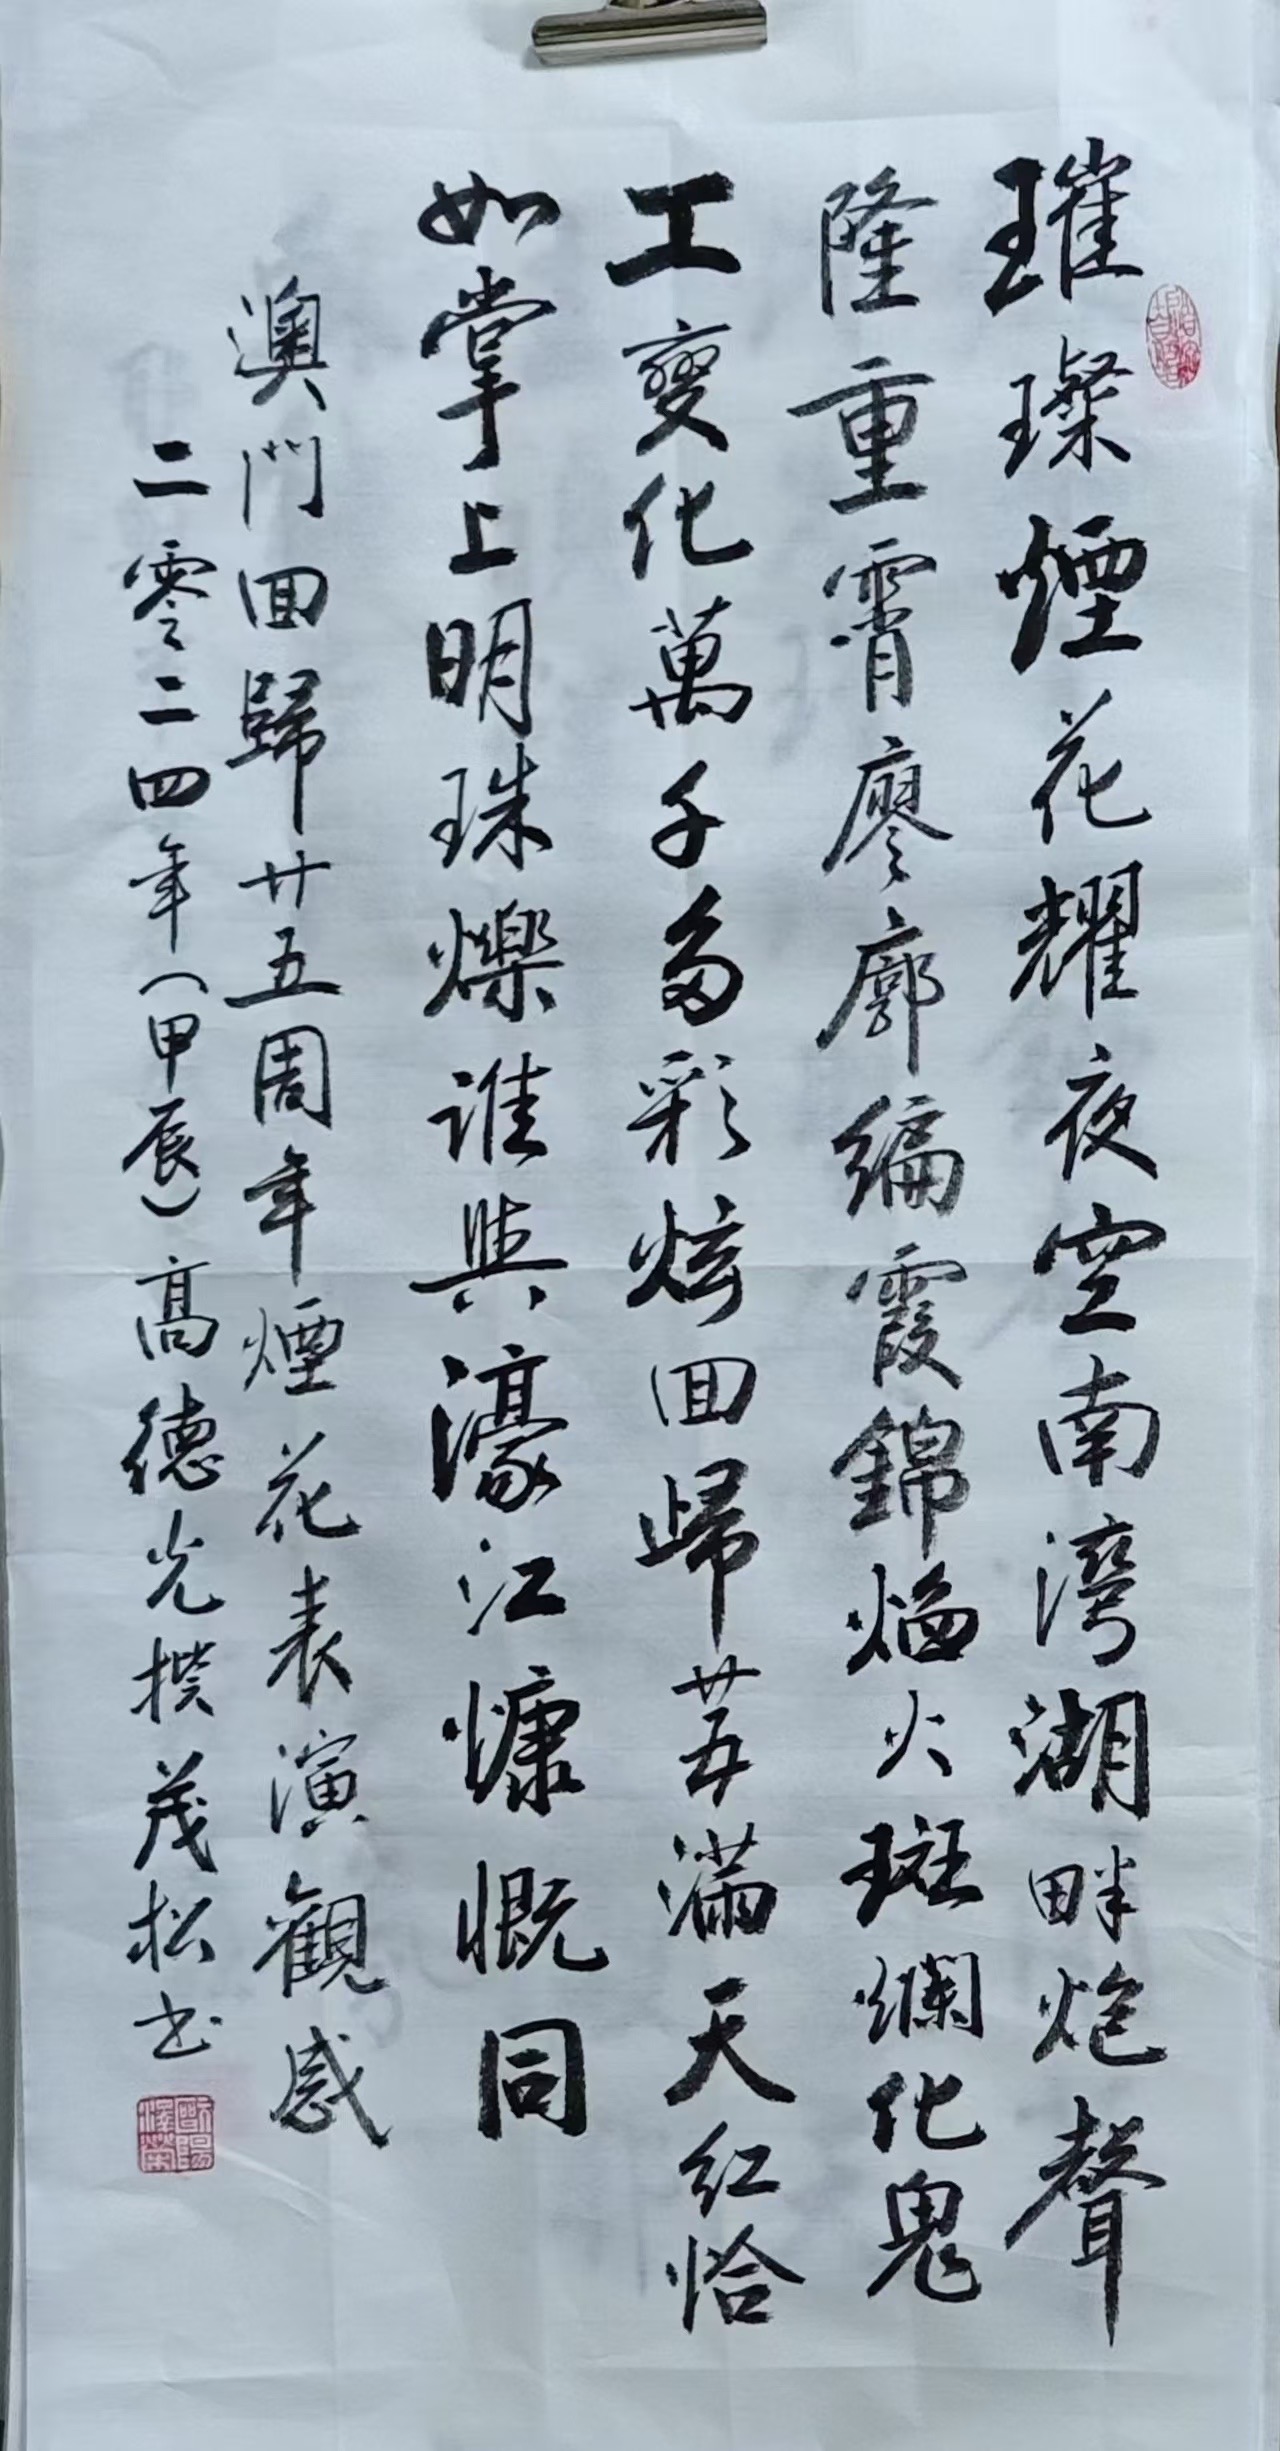 璀璨煙花耀夜空南灣湖畔炮聲
隆重霄廖廓編霞錦焰火斑斕化鬼
工變化萬千多彩炫回歸廿五滿天紅恰
如掌上明珠爍誰與濠江慷慨同
澳門回歸廿五周年煙花表演觀感
二零二四年(甲辰)高德光撰茂松书